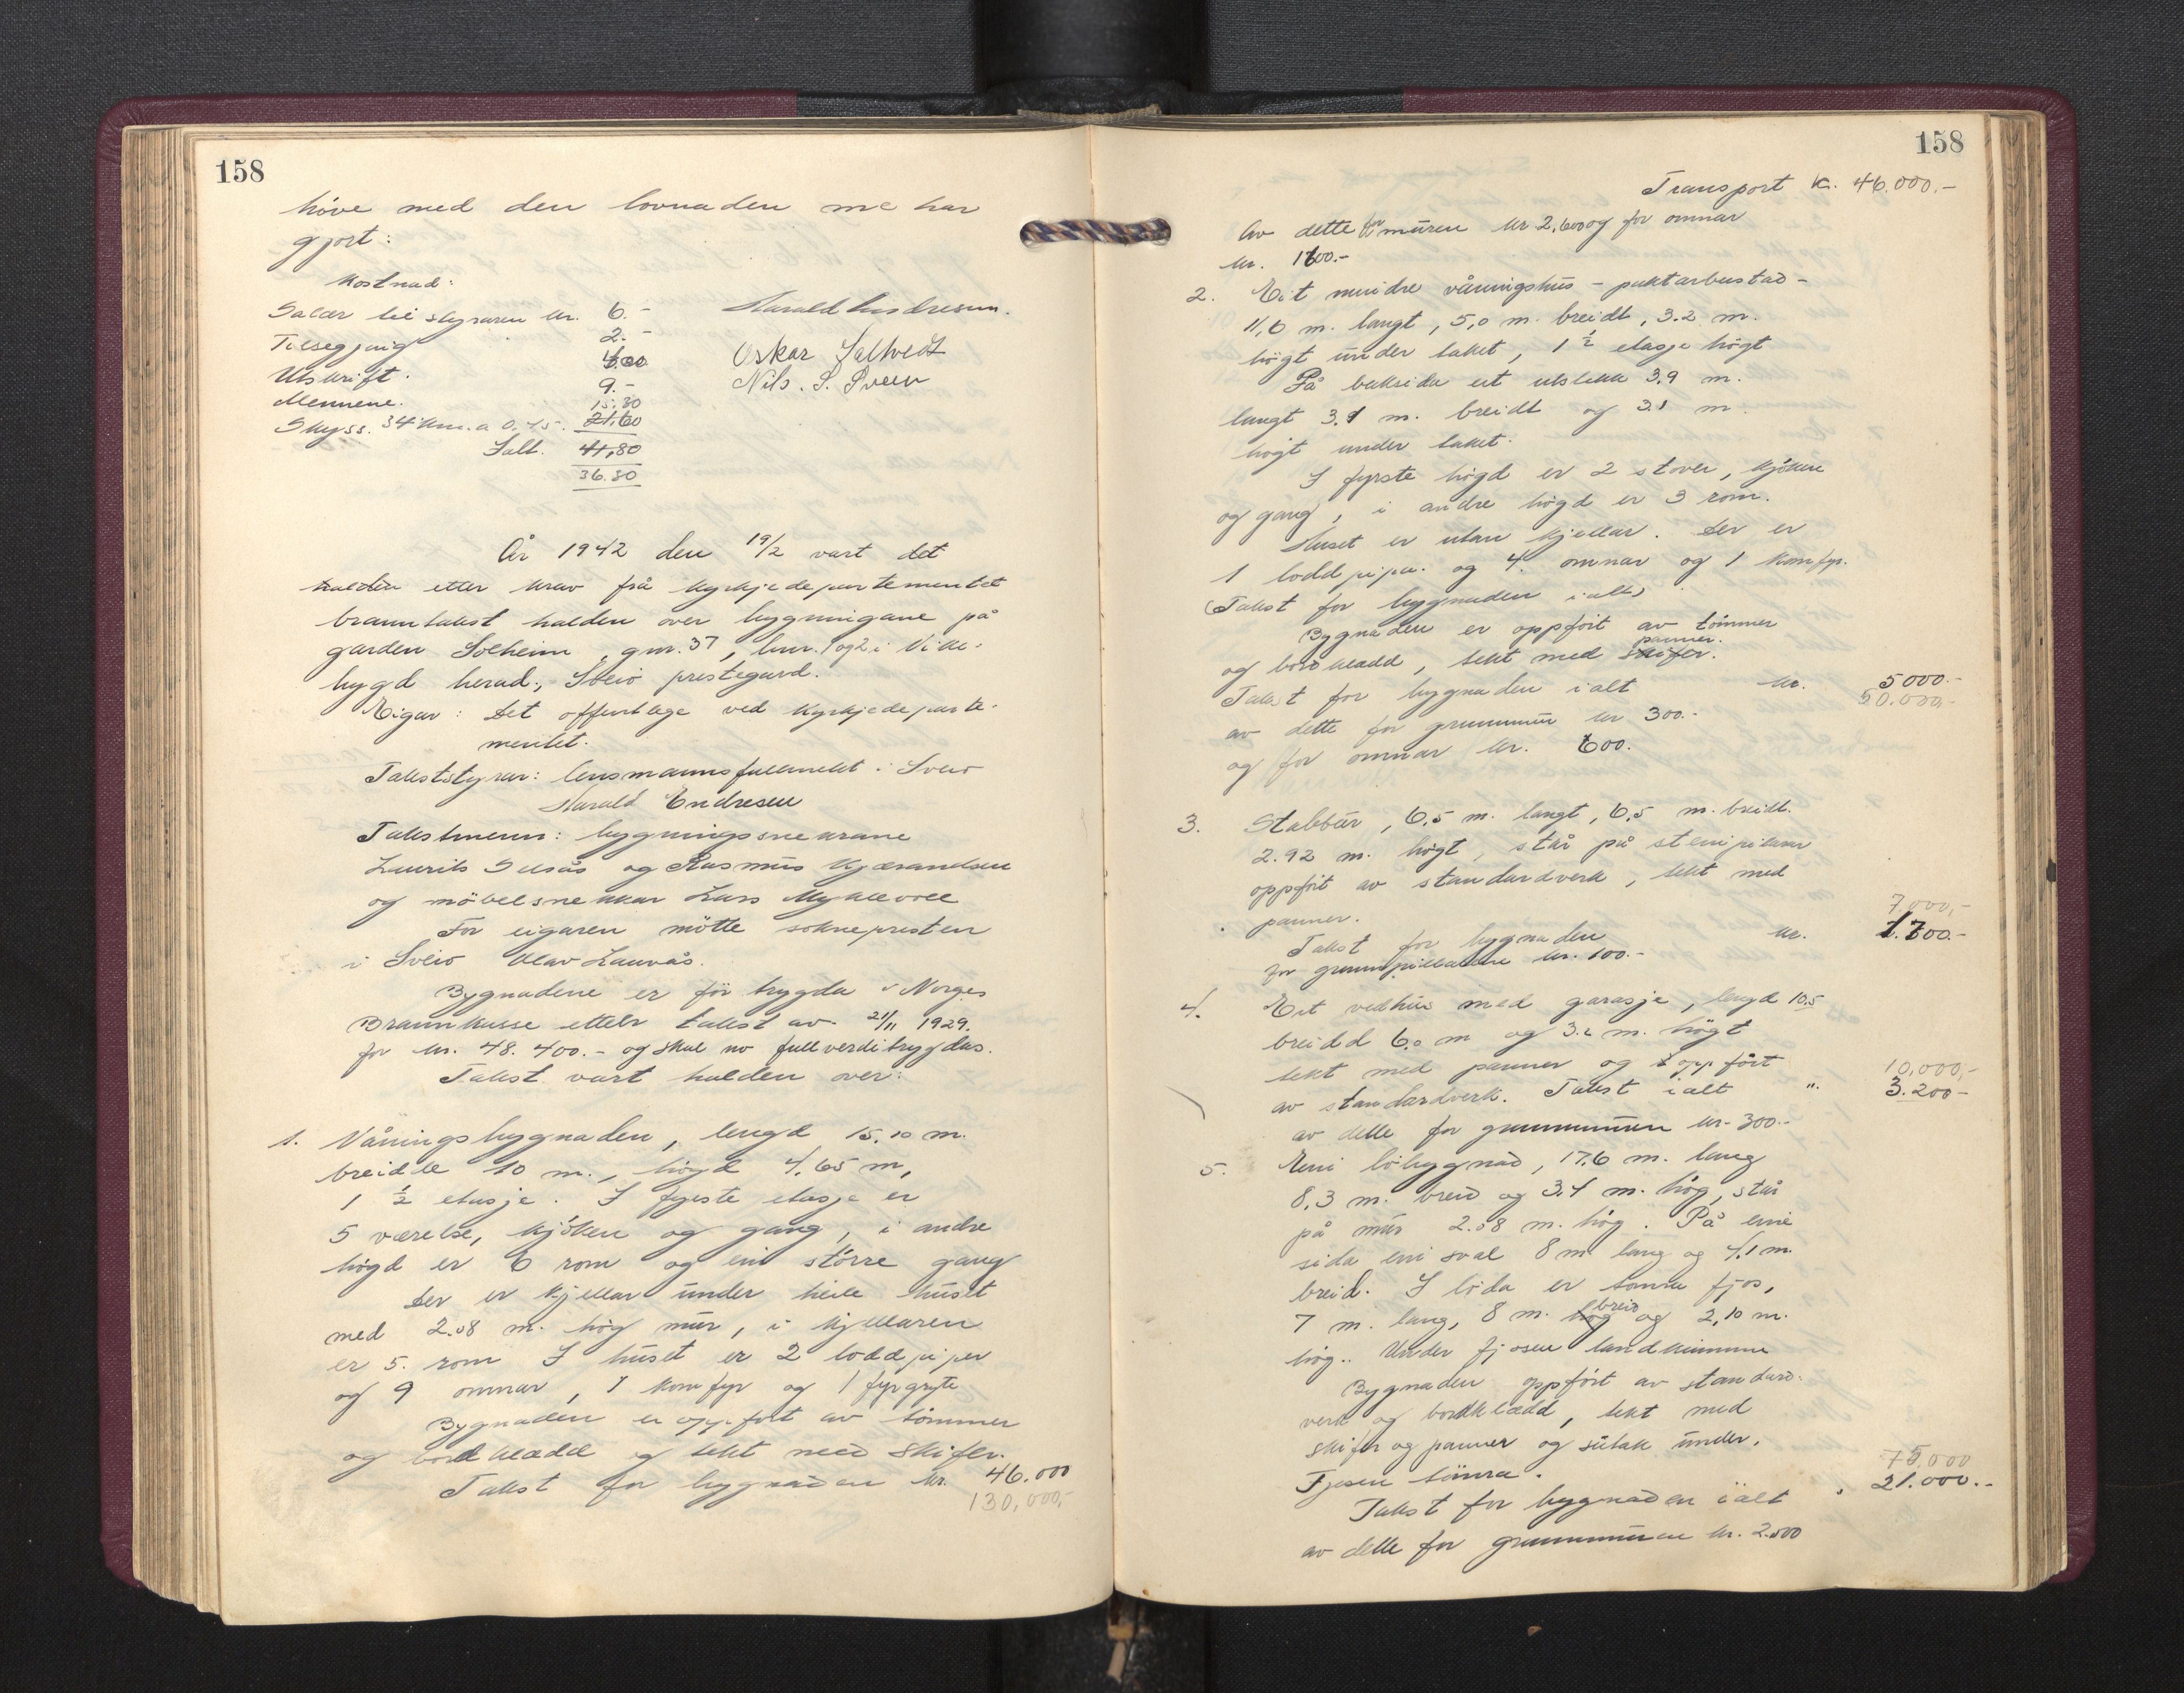 158
høve med den lovnaden me har
gjort:
Kostnad:
Salær til styraren kr. 6.-
Tilsegjing 2.-
Utskrift. 4.00
Mennene. 9.-
15.30
Skyss. 34 km. a 0.45. 21,60
Ialt. 41,80
36.30
Harald Endresen.
Oskar Saltvedt
Nils. S. Sveen
År 1942 den 19/2 vart det
halden etter krav frå kyrkjedepartementet
branntakst halden over bygningane på
garden Solheim, gnr. 37, bnr. 1 og 2 i Vike-
bygd herad, Sveio prestegard.
Eigar: Det offentlege ved Kyrkjedeparte-
mentet.
Takststyrar: lensmannsfullmekt. i Sveio
Harald Endresen
Takstmenn: bygningssnekrane
Laurits Selsås og Rasmus Kjærandsen
og møbelsnekkar Lars Myklevoll
For eigaren møtte soknepresten
i Sveio Olav Lauvås.
Bygnadene er før trygda i Norges
Brannkasse etter takst av 21/11 1929.
for kr. 48.400.- og skal no fullverditrygdas.
Takst vart halden over:
1. Våningsbygnaden, lengd 15.10 m.
breidde 10 m., høgd 4,65 m,
1 ½ etasje. I fyrste etasje er
5 værelse, kjøken og gang, i andre
høgd er 6 rom og ein større gang
Der er kjellar under heile huset
med 2.08 m. høg mur, i kjellaren
er 5. rom I huset er 2 loddpiper
og 9 omnar, 1 komfyr og 1 fyrgryte
Bygnaden er oppført av tømmer
og bordklædd og tekt med skifer.
Takst for bygnaden kr. 46.000
130,000,-
158
Transport K. 46.000.-
Av dette for muren kr 2,600 og for omnar
kr. 1600.-
2. Eit mindre våningshus - paktarbustad -
11,6 m. langt, 5,0 m. breidt, 3.2 m.
høgt under taket, 1 ½ etasje høgt
På baksida eit utstikk 3.9 m.
langt 3.1 m. breidt og 3.1 m.
høgt under taket.
I fyrste høgd er 2 stover, kjøken
og gang, i andre høgd er 3 rom.
Huset er utan kjellar. Der er
1 loddpipe. og 4. omnar og 1 komfyr.
(Takst for bygnaden ialt)
Bygnaden er oppført av tømmer
panner.
og bordklædd, tekt med skifer.
Takst for bygnaden ialt kr. 5000.-
50.000,-
av dette for grunnmur kr 300.-
og for omnar kr. 600.
3. Stabbur, 6.5 m. langt, 6,5 m. breidt.
2.92 m. høgt, står på steinpilarar
oppført av standardverk, tekt med
panner.
7000,-
Takst for bygnaden kr. 1.700.-
for grunnpillarane kr. 100.-
4. Eit vedhus med garasje, lengd 10.5
breidd 6.0 m og 3.2 m. høgt
tekt med panner og oppført
10,000,-
av standardverk. Takst ialt ". 3.200-
av dette for grunnmuren kr. 300.-
5. Ein løbygnad, 17.6 m. lang
8,3 m. breid og 3.4 m. høg, står
på mur 2.08 m. høg. På eine
sida ein sval 8 m lang og 4.1 m.
breid. I løda er tømra fjos,
breid
7 m. lang, 8 m. høg og 2,10 m.
høg.. Under fjosen landkumme
Bygnaden oppført av standard-
verk og bordklædd, tekt med
skifer og panner og sutak under.
Fjosen tømra.
75,000
Takst for bygnaden ialt " 21.000.-
av dette for grunnmuren kr. 2.500